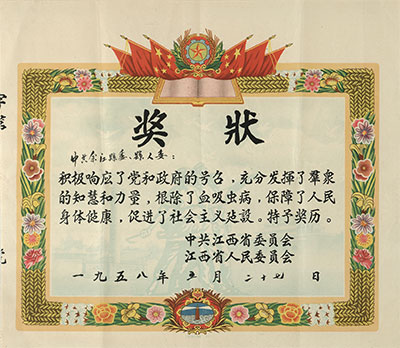 奖狀
中共余江縣委、縣人委:
积极响应了党和政府的号召,充分发揮了羣衆
的知慧和力量,根除了血吸虫病,保障了人民
身体健康,促进了社会主义建設。持予奖历。
中共江西省委員会
江西省人民委員会
一九五八年 五月 二十七 日